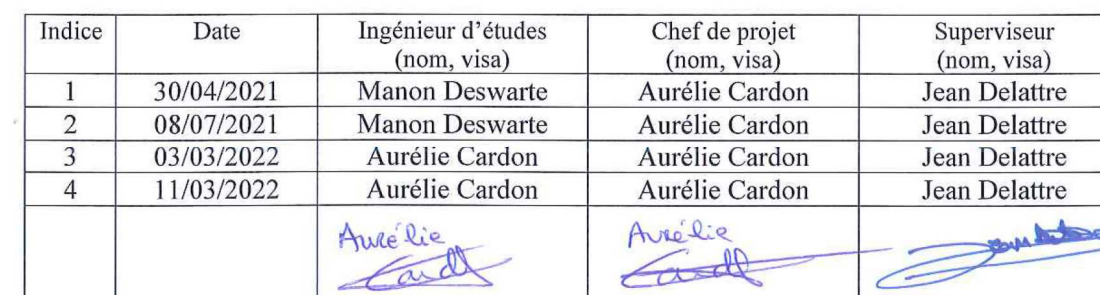 Indice Date Ingénieur d'études (nom, visa) Chef de projet (nom, visa) Superviseur (nom, visa)
1 30/04/2021 Manon Deswarte Aurélie Cardon Jean Delattre
2 08/07/2021 Manon Deswarte Aurélie Cardon Jean Delattre
3 03/03/2022 Aurélie Cardon Aurélie Cardon Jean Delattre
4 11/03/2022 Aurélie Cardon Aurélie Cardon Jean Delattre
Aurélie Aurélie